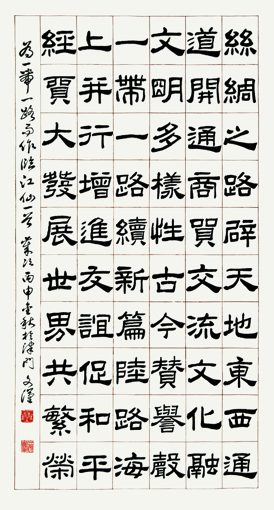 絲綢之路辟天地東西通
道開通商貿交流文化融
文明多樣性古今贊譽聲
一帶一路續新篇陸路海
上并行增進友誼促和平
經貿大發展世界共繁榮
為一帶一路而作臨江仙一首 歲次丙申金秋於津門 文